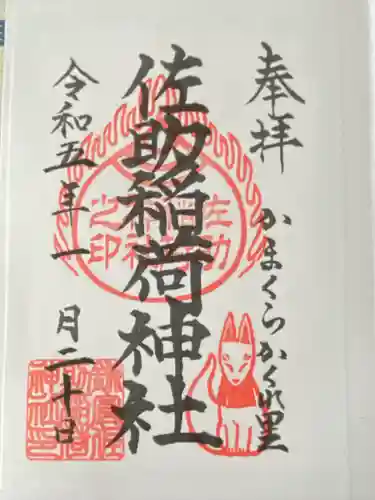 奉拝
かまくらかくれ里
佐助稲荷神社
令和五年一月二十日